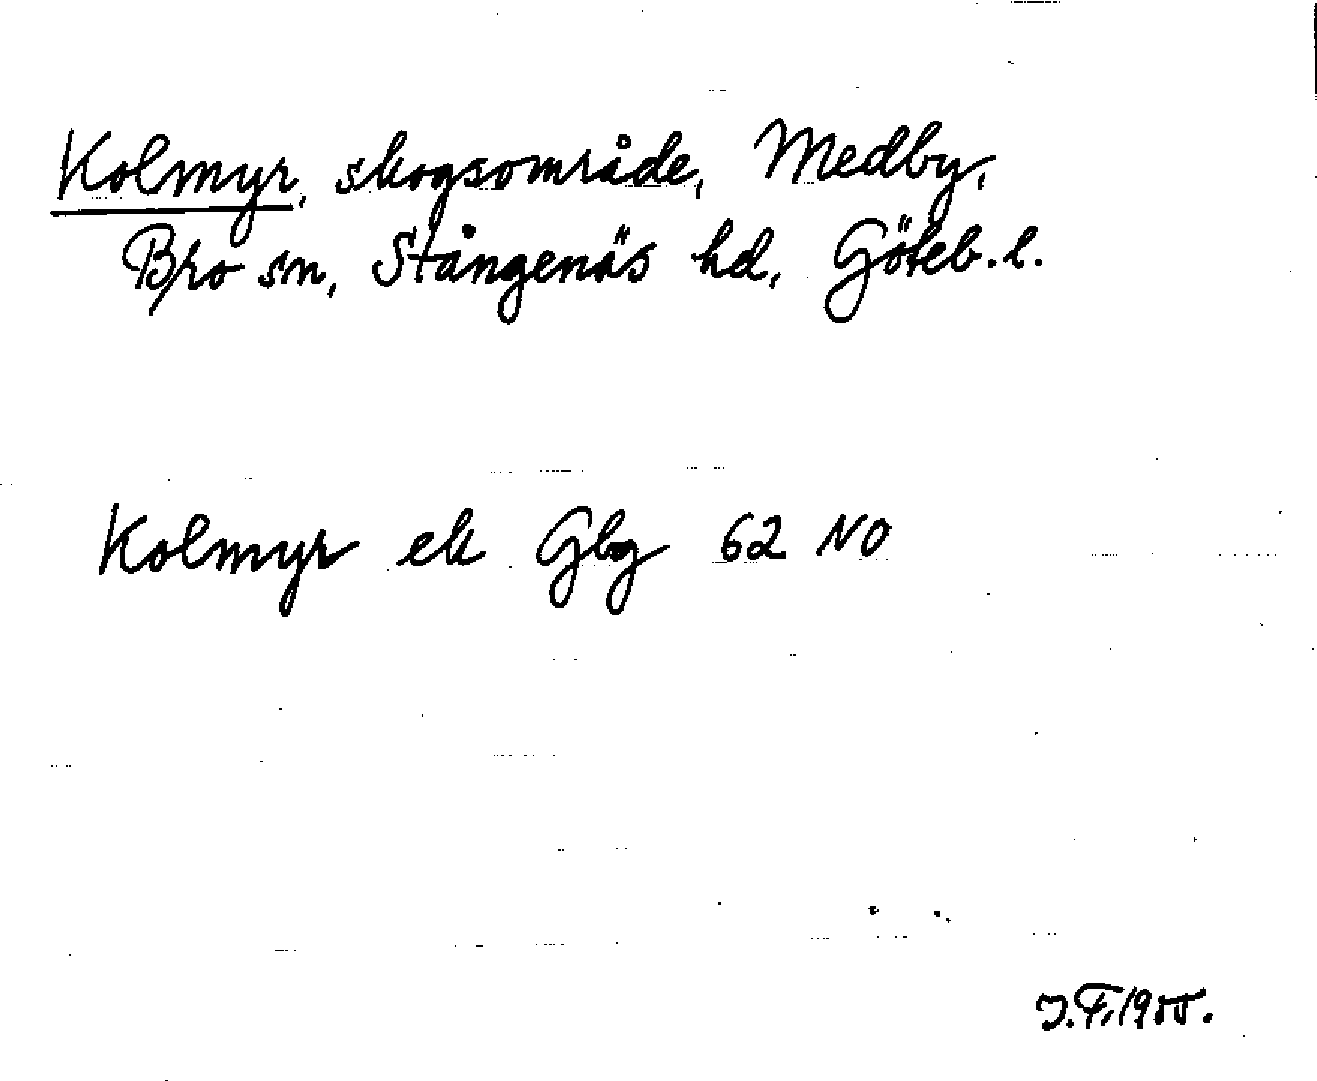 Kolmyr, skogsområde, Medby,
Bro sn, Stångenäs hd, Göteb. l.
Kolmyr ek Gbg 62 NO
J.F. 1955.